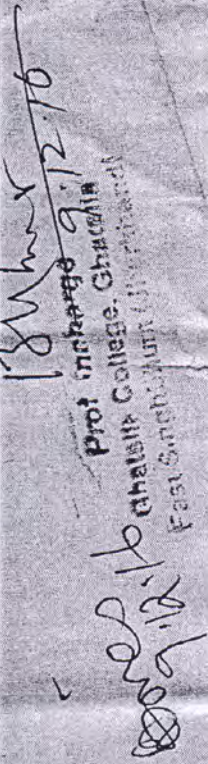 9.12.16
Prof incharge
Ghatsila College, Ghatsila
East Singhbhum (Jharkhand)
9.12.16